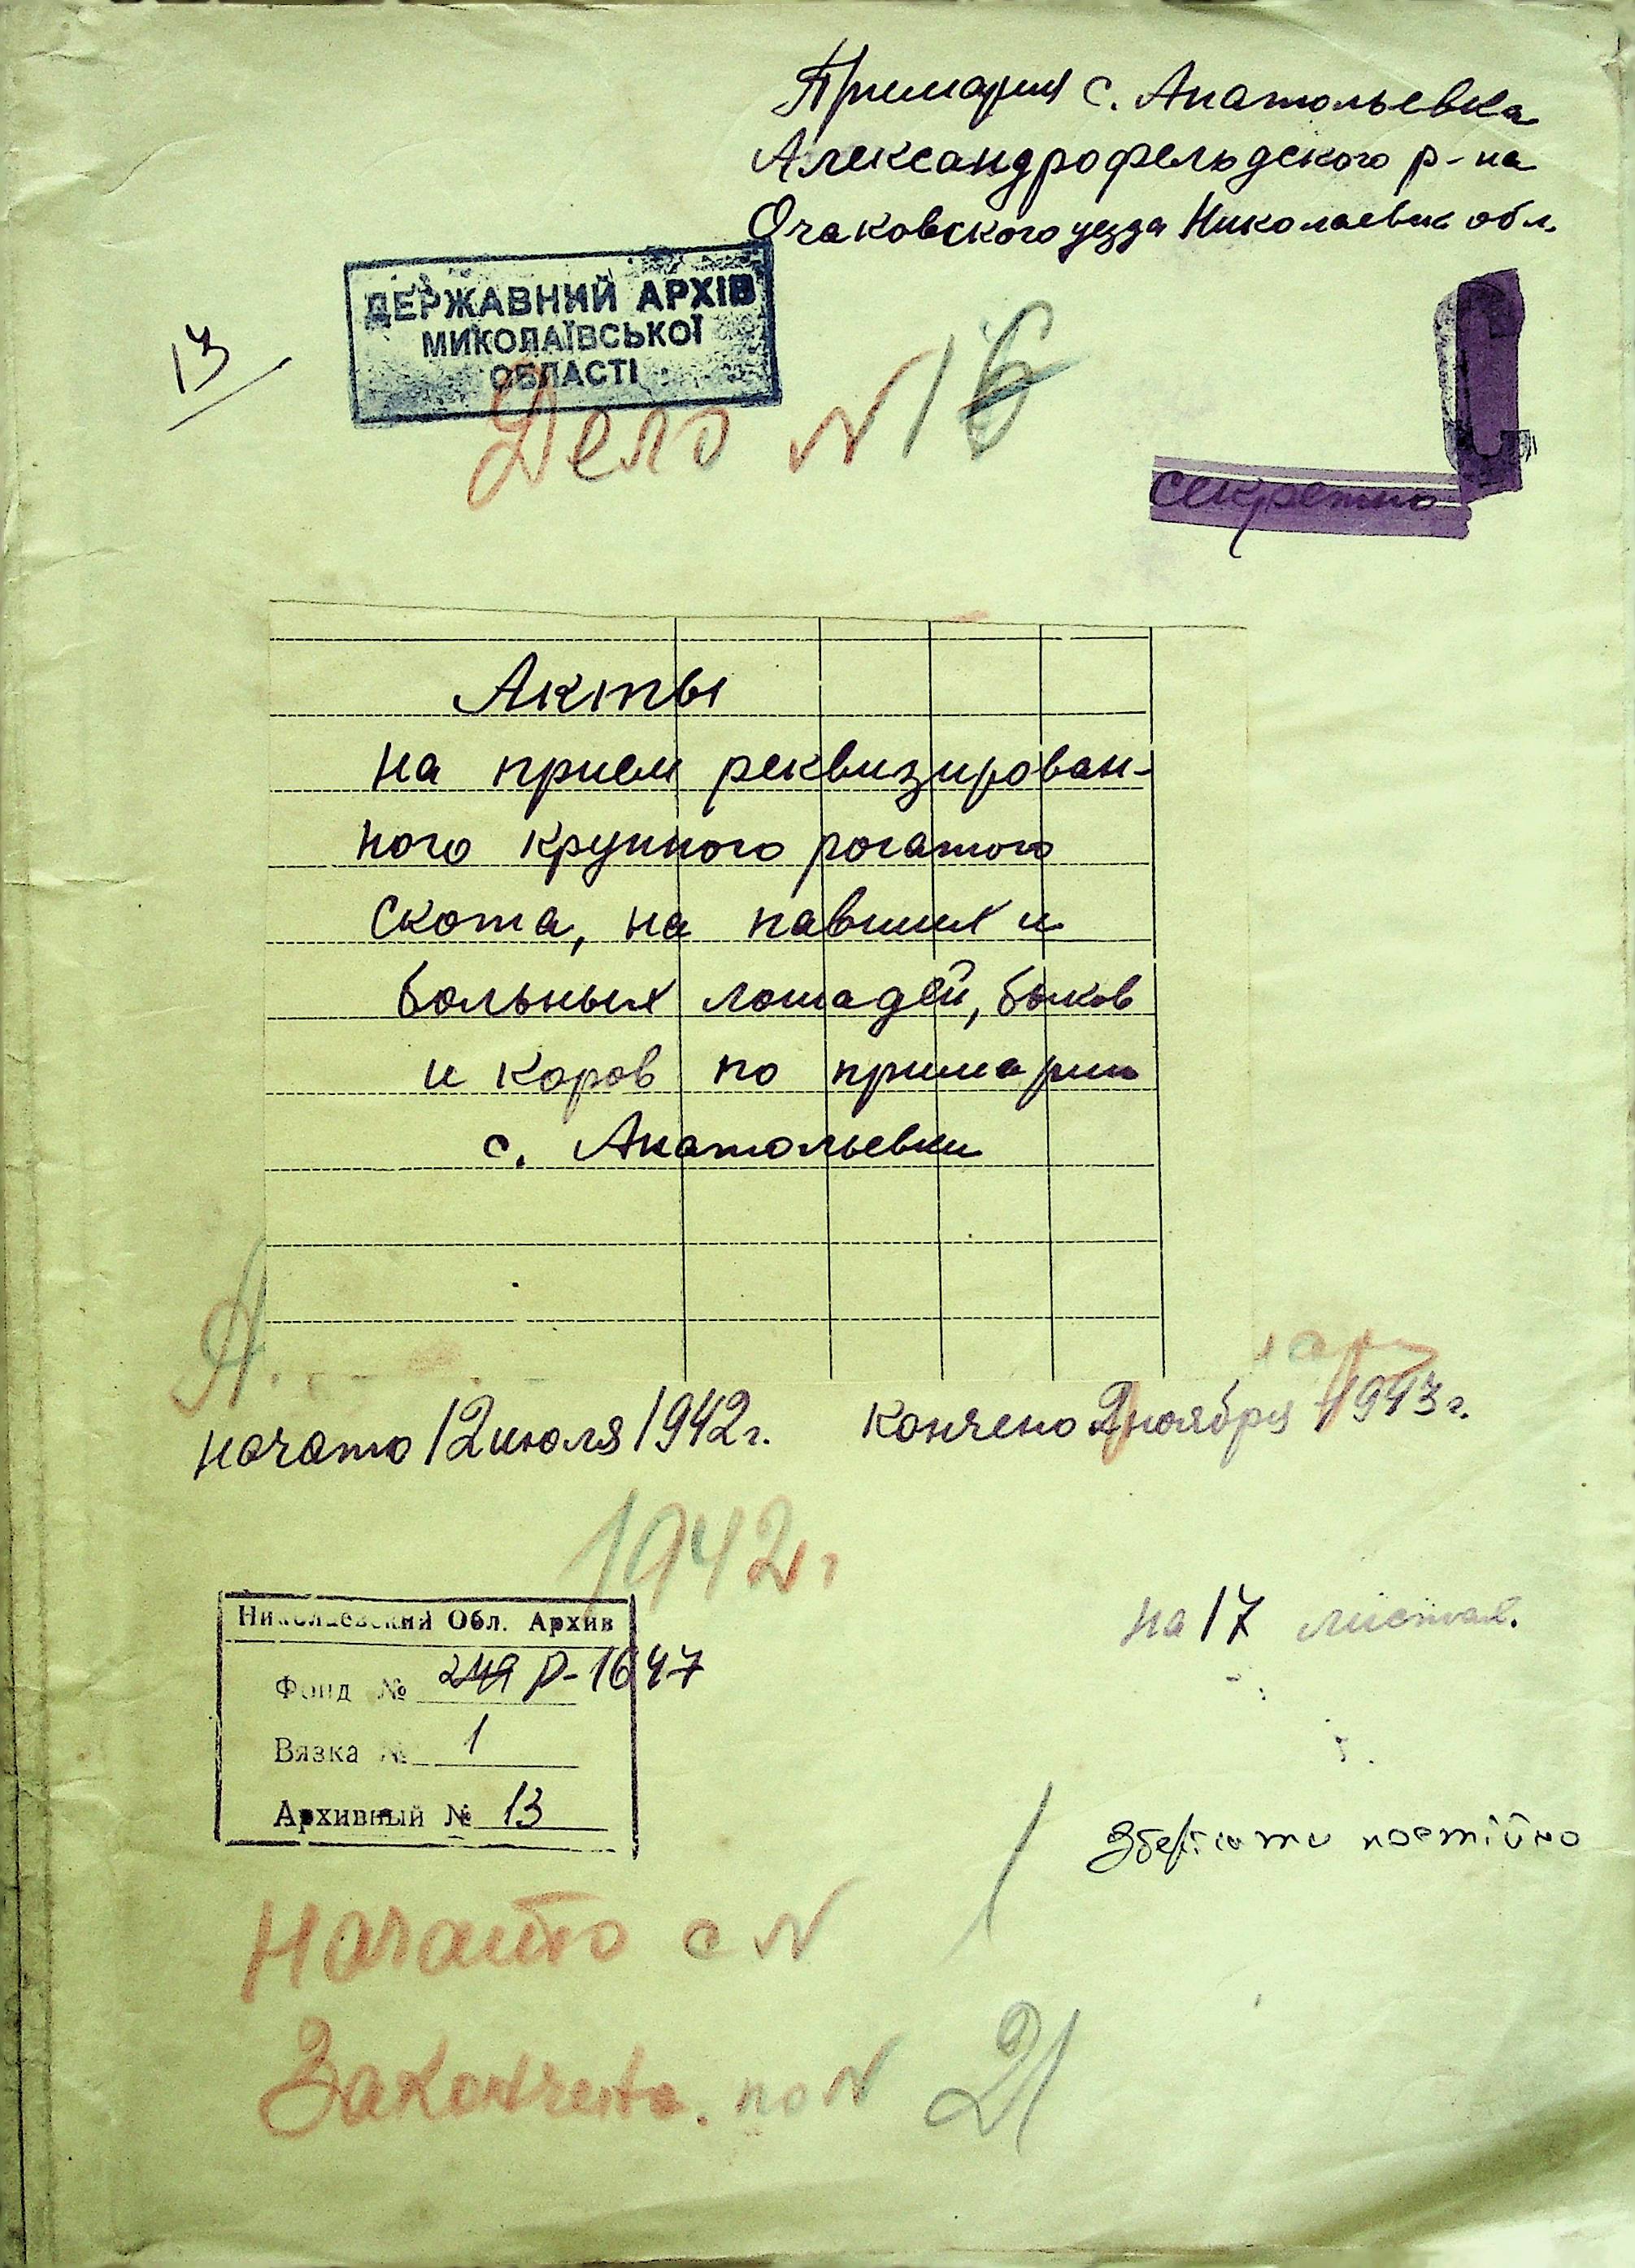 Примария с. Анатольевка
Александрофельдского р-на
Очаковского уезда Николаевск обл.
ДЕРЖАВНИЙ АРХІВ
МИКОЛАЇВСЬКОЇ
ОБЛАСТІ
13
Дело N 16
секретно
Акты
на прием реквизирован-
ного крупного рогатого
скота, на павших и
больных лошадей, быков
и коров по примарии
с. Анатольевки
начато 12 июля 1942 г. кончено 2 ноября 1943 г.
1942 г
Николаевский Обл. Архив
на 17 листах.
Фонд № 249 Р-1647
Вязка № 1
Архивный № 13
Зберігати постійно
Начато с N 1
Закончено. по N 21